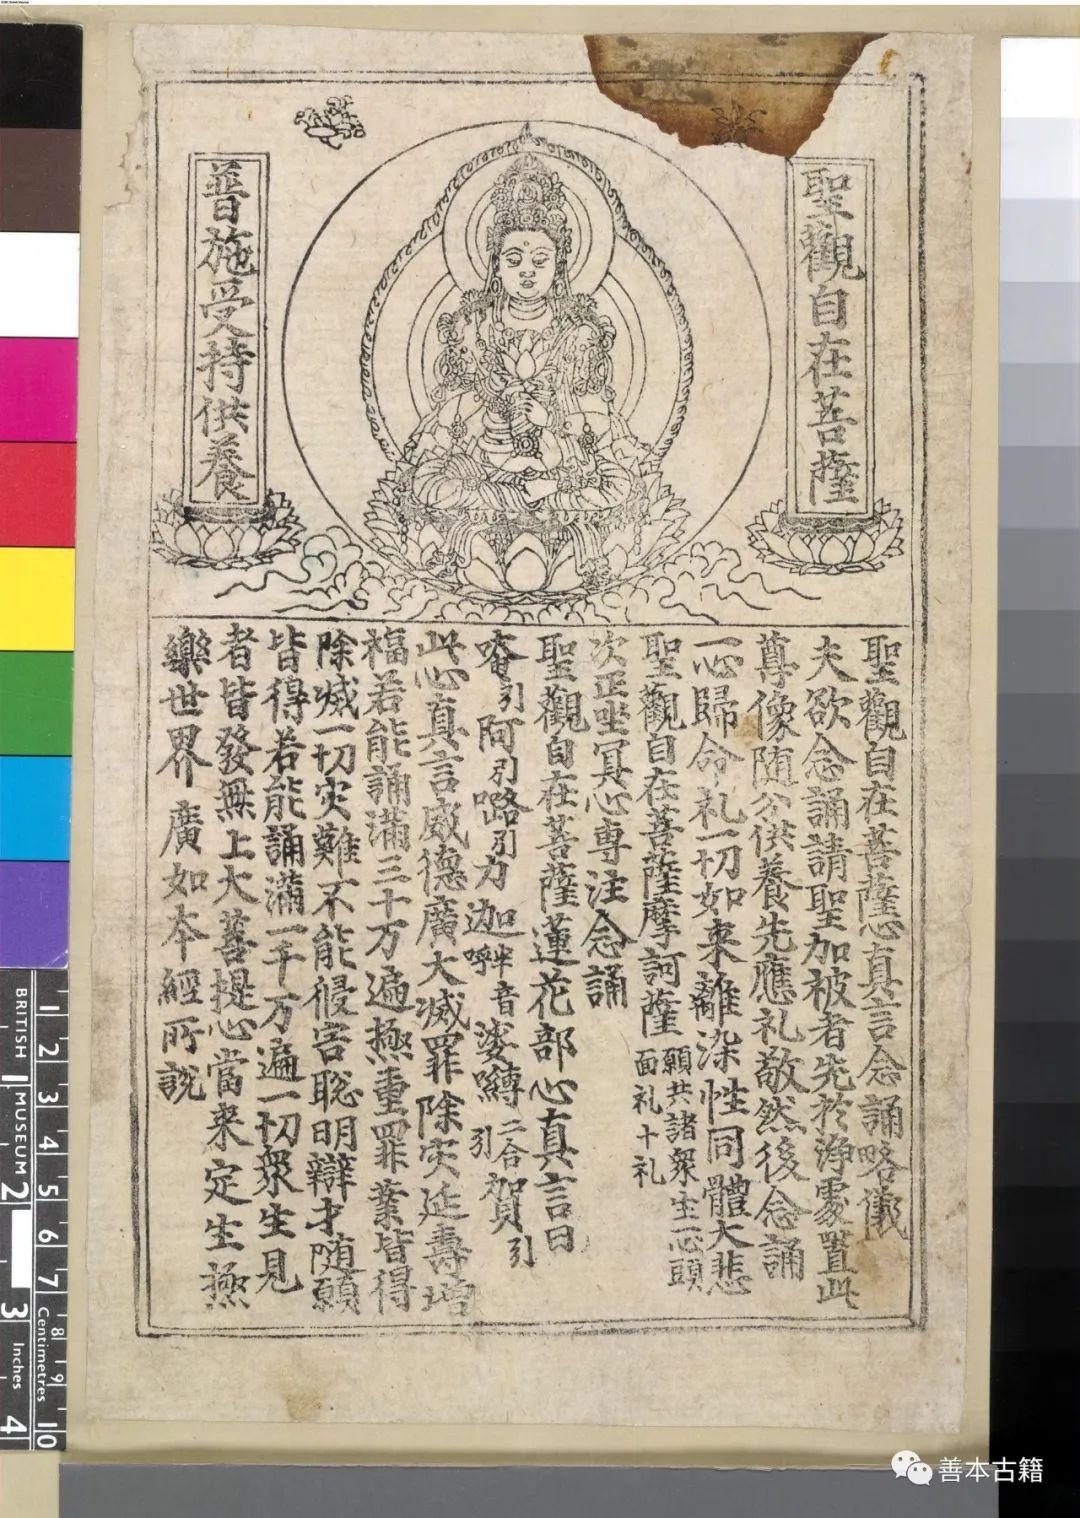 聖觀自在菩薩
普施受持供養
聖觀自在菩薩心真言念誦略儀
夫欲念誦請聖加被者先於淨處置此
尊像随分供養先應礼敬然後念誦
一心歸命礼一切如來離染性同體大悲
聖觀自在菩薩摩訶薩 願共諸衆生一心頭
面礼十礼
次正坐冥心專注念誦
聖觀自在菩薩蓮花部心真言曰
唵引阿引嚕引力迦半音呼娑嚩二合引賀引
此心真言威德廣大滅罪除灾延壽增
福若能誦滿三十万遍極重罪業皆得
除滅一切灾難不能侵害聡明辯才随願
皆得若能誦滿一千万遍一切衆生見
者皆發無上大菩提心當来定生極
樂世界廣如本經所說
BRITISH MUSEUM
1 2 3 4 5 6 7 8 9 10
Centimetres
1 2 3 4
Inches
善本古籍